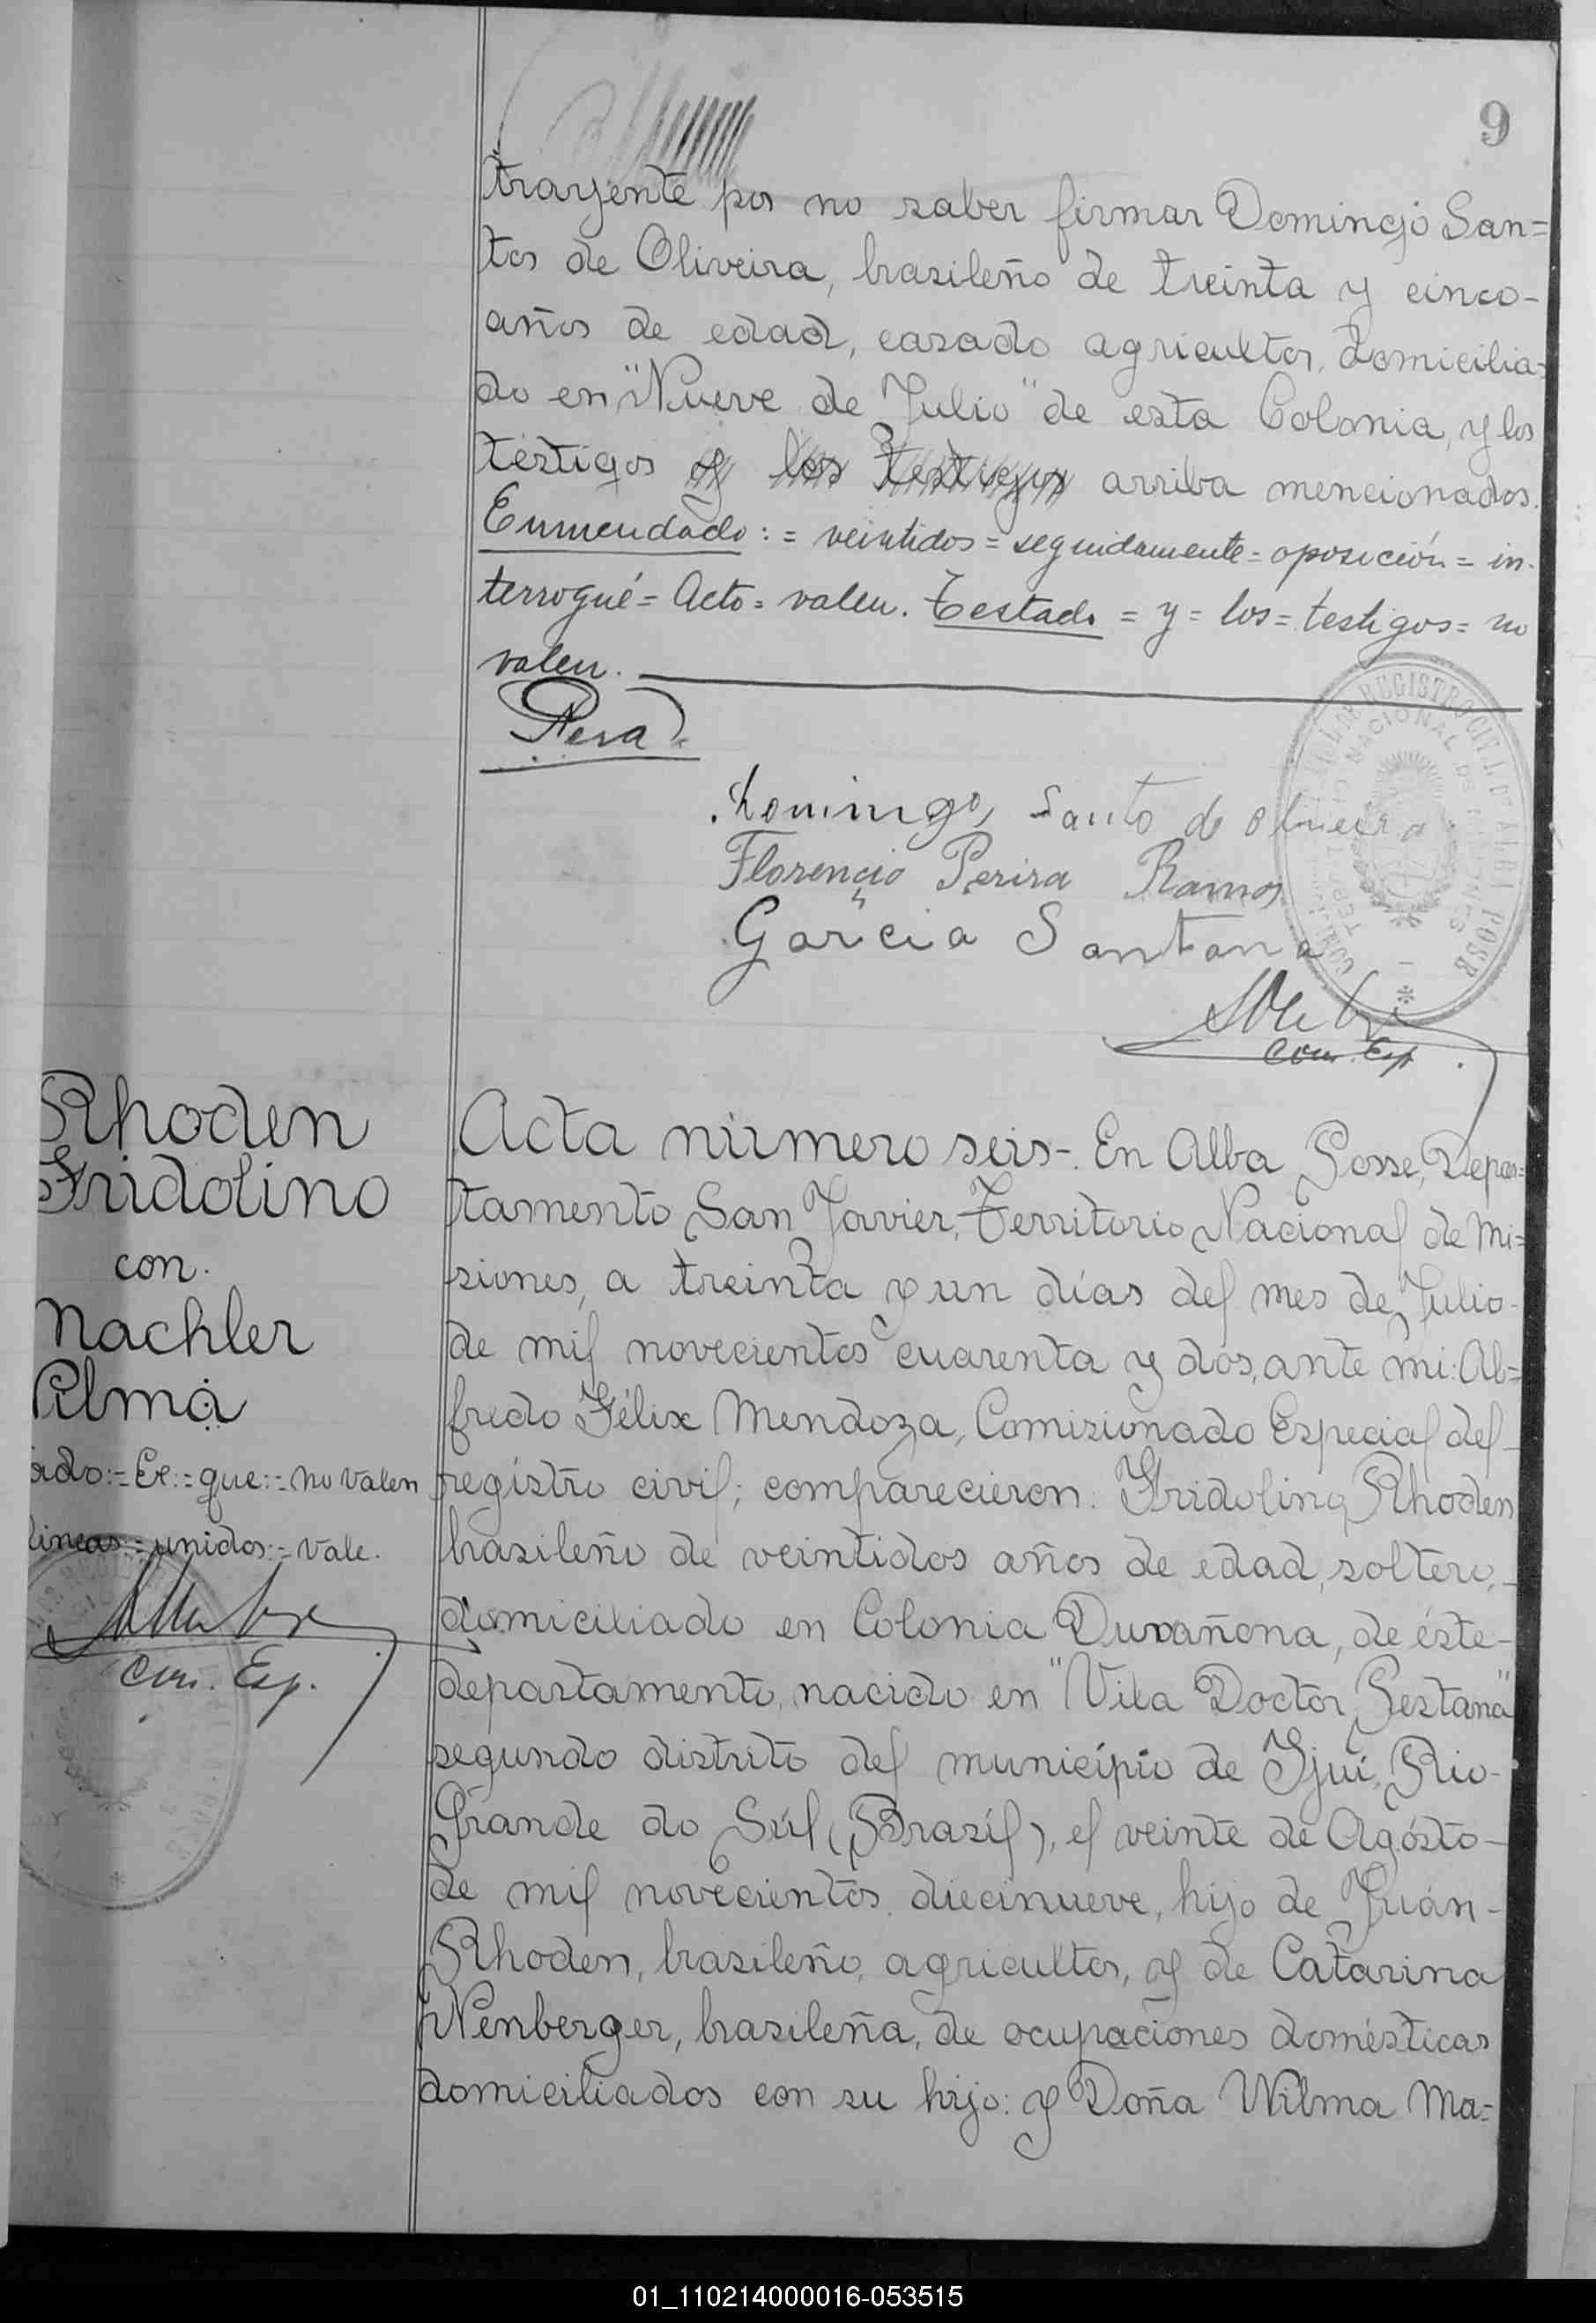 9
trayente por no saber firmar Domingo San=
tos de Oliveira, brasileño de treinta y cinco-
años de edad, casado agricultor, domicilia=
do en "Nueve de Julio" de esta Colonia, y los
testigos y los testigos arriba mencionados.
Enmendado: = veintidos = seguidamente = oposición = in-
terrogué = Acto = valen. Testado = y = los = testigos = no
valen.
Domingo, Santo de oliveira
Florencio Perira Ramos
Garcia Santana
Com. Esp.
REGISTRO CIVIL DE ALBA POSSE
Rhoden
Fridolino
con.
Nachler
Wilma
ado:= Ex:= que:= no valen
lineas:= unidos:= vale.
Com. Esp.
Acta número seis-. En Alba Posse, Depar=
tamento San Javier, Territorio Nacional de Mi=
siones, a treinta y un días del mes de Julio-
de mil novecientos cuarenta y dos, ante mi: Al=
fredo Félix Mendoza, Comisionado Especial del-
registro civil; comparecieron: Fridolino Rhoden
brasileño de veintidos años de edad, soltero,-
domiciliado en Colonia de éste-
departamento, nacido en "Vila Doctor Pestana"
segundo distrito del municipio de Ijuí, Rio-
Grande do Súl (Brasíl), el veinte de Agósto-
de mil novecientos diecinueve, hijo de Juán-
Rhoden, brasileño, agricultor, y de Catarina
Wenberger, brasileña, de ocupaciones domésticas
domiciliados con su hijo: y Doña Wilma Ma=
01_110214000016-053515